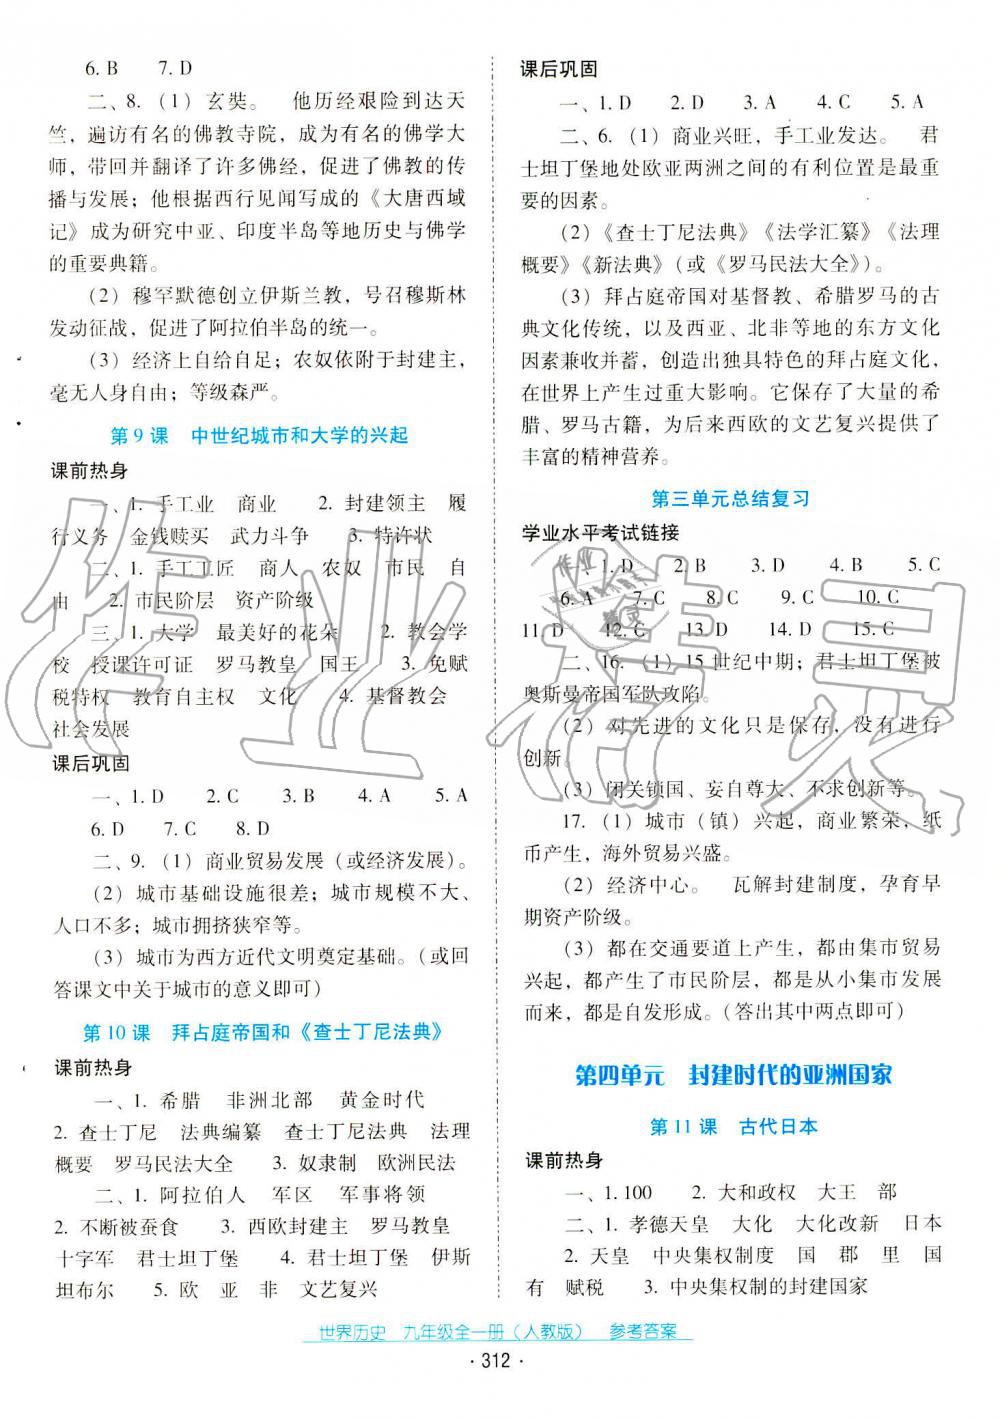 6. B　7. D
二、8.（1）玄奘。　他历经艰险到达天
竺，遍访有名的佛教寺院，成为有名的佛学大
师，带回并翻译了许多佛经，促进了佛教的传
播与发展；他根据西行见闻写成的《大唐西域
记》成为研究中亚、印度半岛等地历史与佛学
的重要典籍。
（2）穆罕默德创立伊斯兰教，号召穆斯林
发动征战，促进了阿拉伯半岛的统一。
（3）经济上自给自足；农奴依附于封建主，
毫无人身自由；等级森严。
第 9 课　中世纪城市和大学的兴起
课前热身
一、1. 手工业　商业　2. 封建领主　履
行义务　金钱赎买　武力斗争　3. 特许状
二、1. 手工工匠　商人　农奴　市民　自
由　2. 市民阶层　资产阶级
三、1. 大学　最美好的花朵　2. 教会学
校　授课许可证　罗马教皇　国王　3. 免赋
税特权　教育自主权　文化　4. 基督教会
社会发展
课后巩固
一、1. D　2. C　3. B　4. A　5. A
6. D　7. C　8. D
二、9.（1）商业贸易发展（或经济发展）。
（2）城市基础设施很差；城市规模不大、
人口不多；城市拥挤狭窄等。
（3）城市为西方近代文明奠定基础。（或回
答课文中关于城市的意义即可）
第 10 课　拜占庭帝国和《查士丁尼法典》
课前热身
一、1. 希腊　非洲北部　黄金时代
2. 查士丁尼　法典编纂　查士丁尼法典　法理
概要　罗马民法大全　3. 奴隶制　欧洲民法
二、1. 阿拉伯人　军区　军事将领
2. 不断被蚕食　3. 西欧封建主　罗马教皇
十字军　君士坦丁堡　4. 君士坦丁堡　伊斯
坦布尔　5. 欧　亚　非　文艺复兴
课后巩固
一、1. D　2. D　3. A　4. C　5. A
二、6.（1）商业兴旺，手工业发达。　君
士坦丁堡地处欧亚两洲之间的有利位置是最重
要的因素。
（2）《查士丁尼法典》《法学汇纂》《法理
概要》《新法典》（或《罗马民法大全》）。
（3）拜占庭帝国对基督教、希腊罗马的古
典文化传统，以及西亚、北非等地的东方文化
因素兼收并蓄，创造出独具特色的拜占庭文化，
在世界上产生过重大影响。它保存了大量的希
腊、罗马古籍，为后来西欧的文艺复兴提供了
丰富的精神营养。
第三单元总结复习
学业水平考试链接
1. D　2. B　3. D　4. B　5. C
6. A　7. C　8. C　9. C　10. C
11. D　12. C　13. D　14. D　15. C
二、16.（1）15 世纪中期；君士坦丁堡被
奥斯曼帝国军队攻陷。
（2）对先进的文化只是保存，没有进行
创新。
（3）闭关锁国、妄自尊大、不求创新等。
17.（1）城市（镇）兴起，商业繁荣，纸
币产生，海外贸易兴盛。
（2）经济中心。　瓦解封建制度，孕育早
期资产阶级。
（3）都在交通要道上产生，都由集市贸易
兴起，都产生了市民阶层，都是从小集市发展
而来，都是自发形成。（答出其中两点即可）
第四单元　封建时代的亚洲国家
第 11 课　古代日本
课前热身
一、1. 100　2. 大和政权　大王　部
二、1. 孝德天皇　大化　大化改新　日本
2. 天皇　中央集权制度　国　郡　里　国
有　赋税　3. 中央集权制的封建国家
世界历史　九年级全一册（人教版）　参考答案
· 312 ·
作业精灵